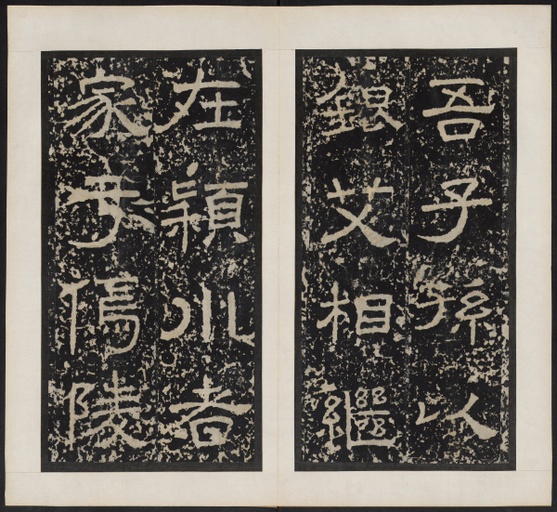 吾子孫以
銀艾相繼
在潁川者
家于傿陵